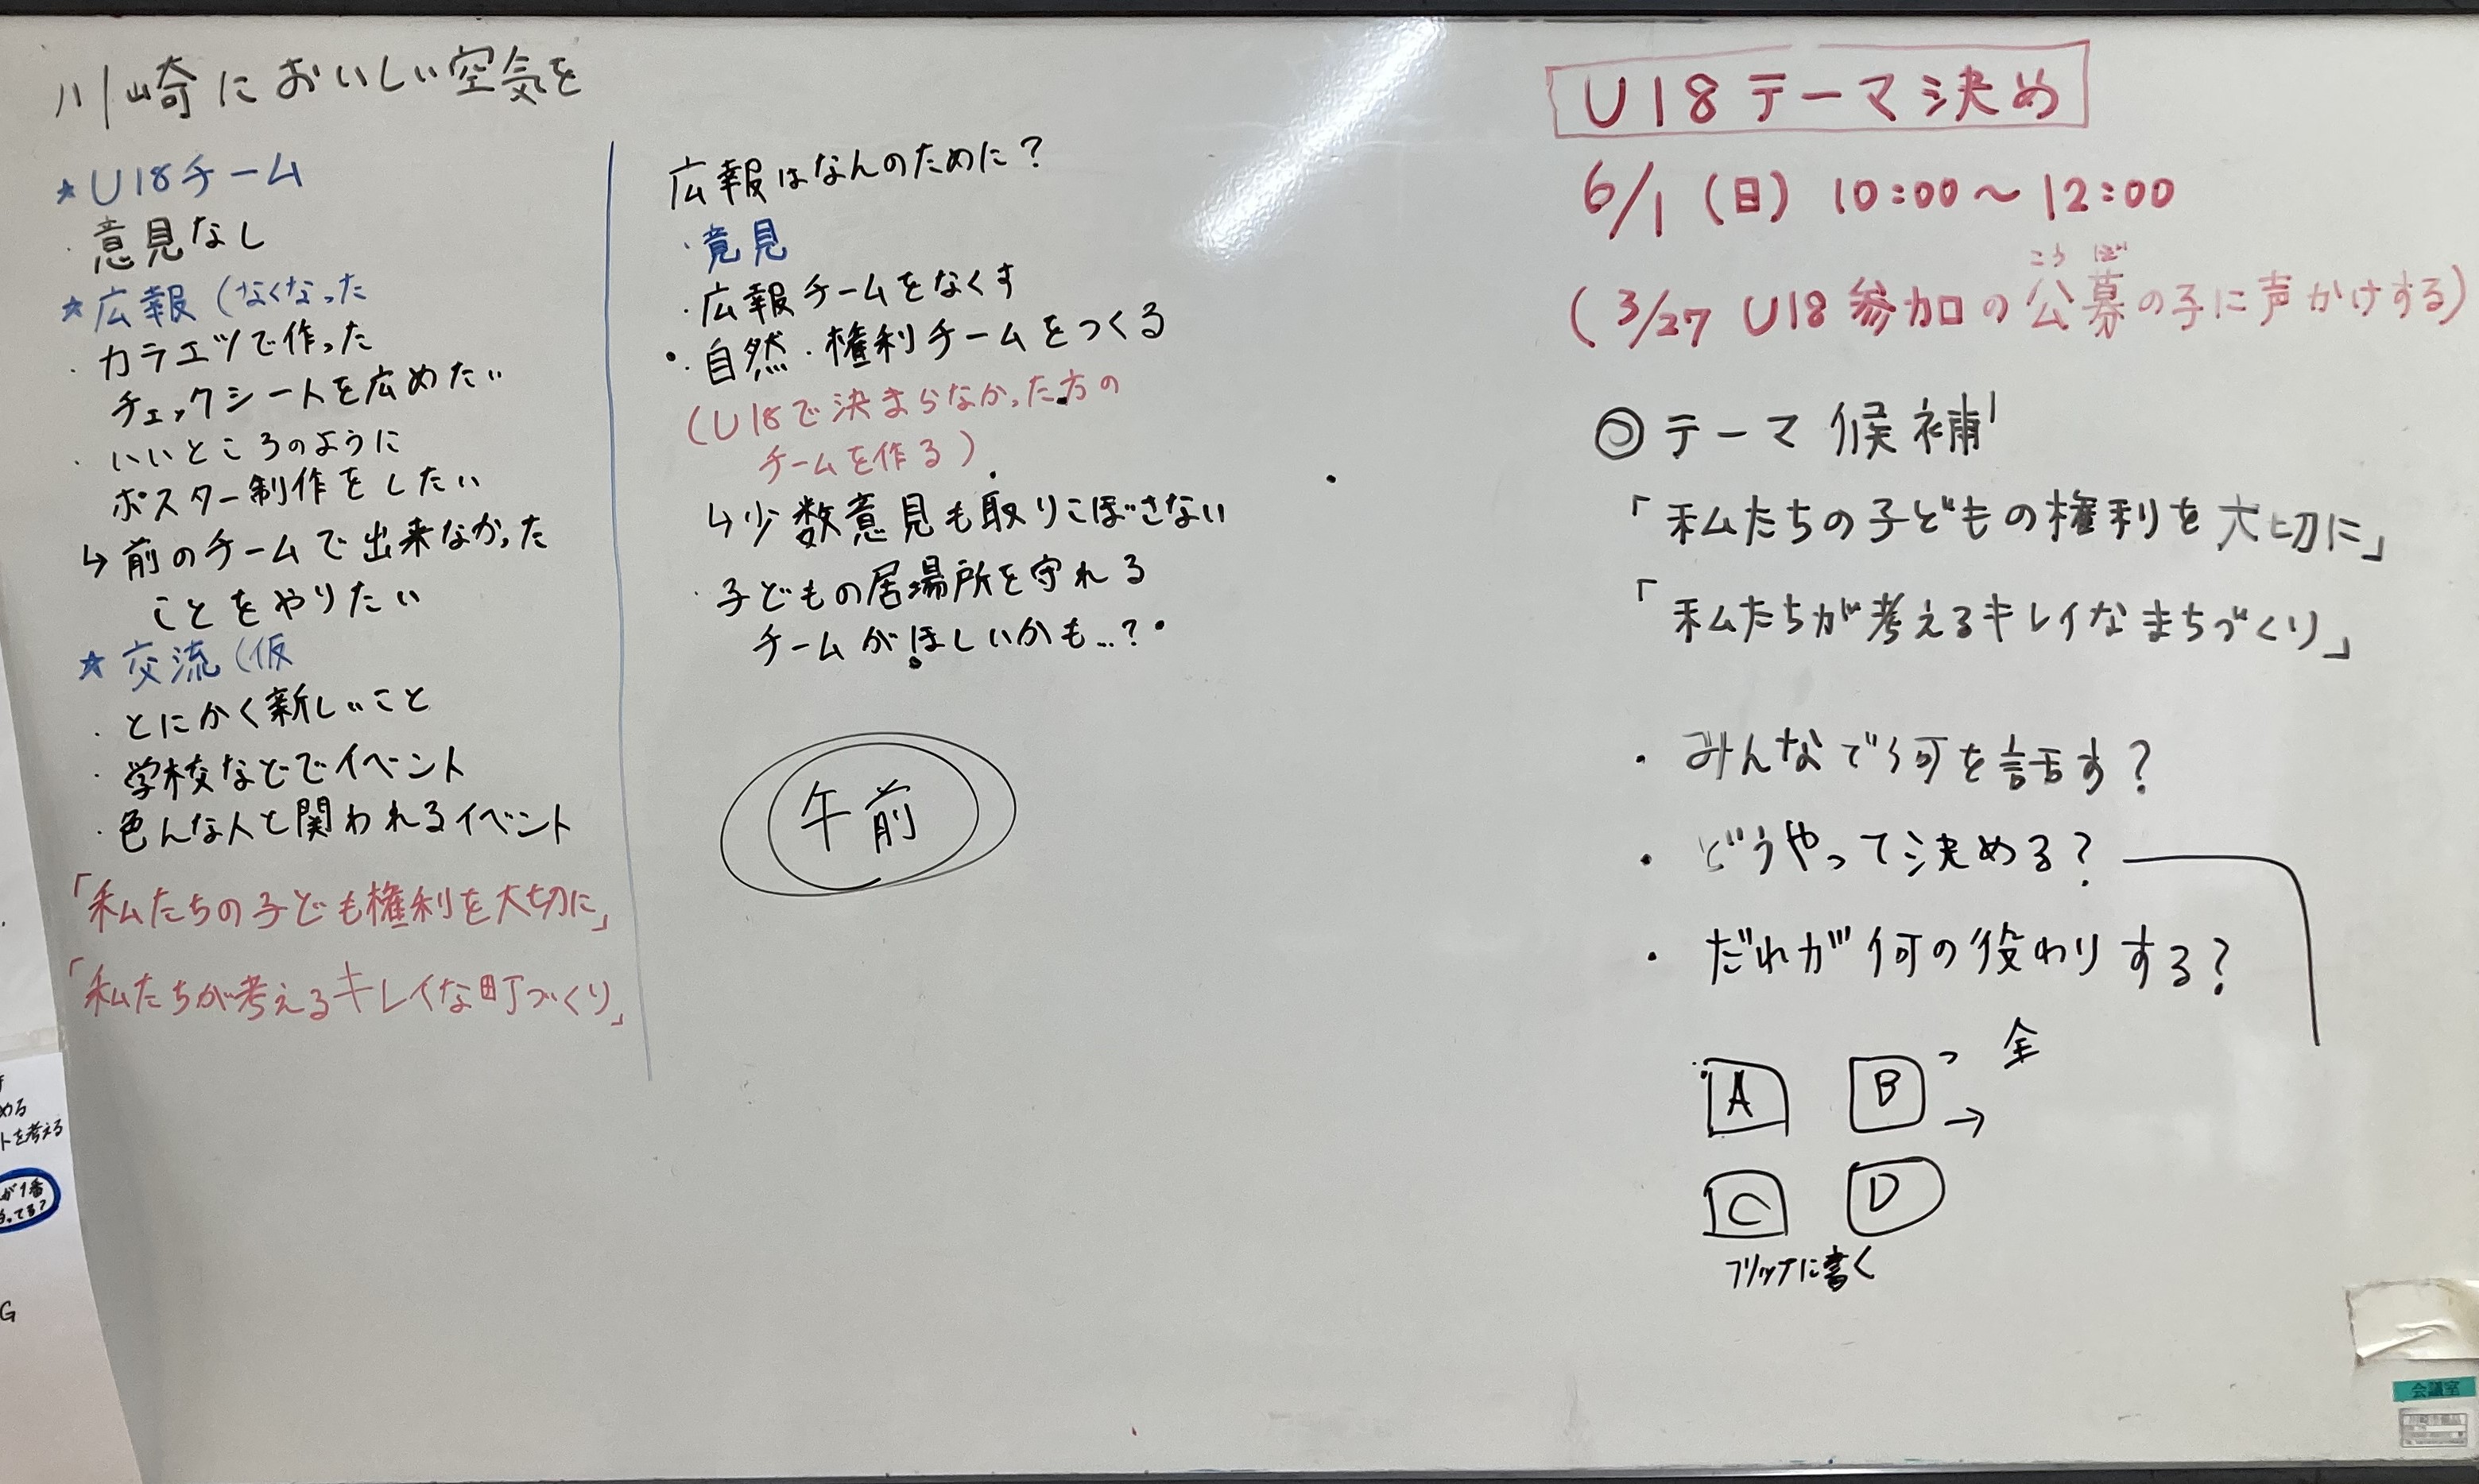 川崎においしい空気を
★U18チーム
・意見なし
★広報(なくなった
・カラエツで作った
チェックシートを広めたい
・いいところのように
ポスター制作をしたい
↳前のチームで出来なかった
ことをやりたい
★交流(仮
・とにかく新しいこと
・学校などでイベント
・色んな人と関われるイベント
「私たちの子ども権利を大切に」
「私たちが考えるキレイな町づくり」
広報はなんのために？
・意見
・広報チームをなくす
・自然・権利チームをつくる
(U18で決まらなかった方の
チームを作る)
↳少数意見も取りこぼさない
・子どもの居場所を守れる
チームがほしいかも…？
午前
U18テーマ決め
6/1(日) 10:00〜12:00
こう ぼ
(3/27 U18参加の公募の子に声かけする)
◎テーマ候補
「私たちの子どもの権利を大切に」
「私たちが考えるキレイなまちづくり」
・みんなで何を話す？
・どうやって決める？
・だれが何の役わりする？
全
A B →
C D
フリップに書く
める
トを考える
が1番
ってる？
G
会議室